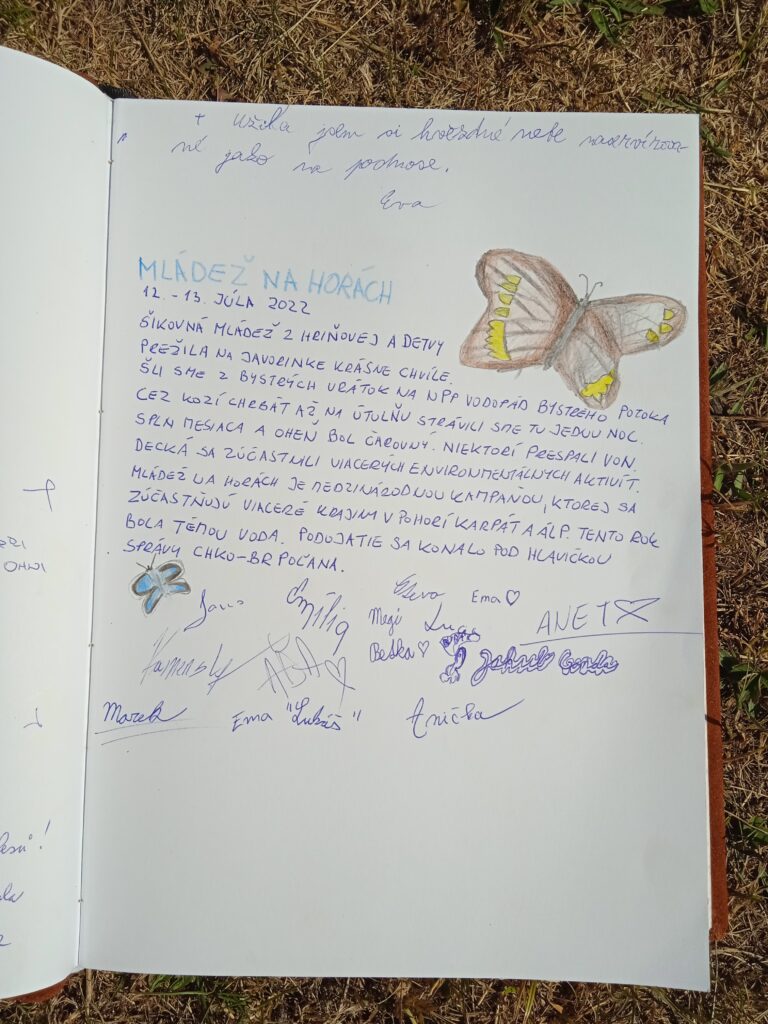 + užila jsem si hvězdné nebe naservírova-
né jako na podnose.
Eva
MLÁDEŽ NA HORÁCH
12. - 13. JÚLA 2022
ŠIKOVNÁ MLÁDEŽ Z HRIŇOVEJ A DETVY
PREŽILA NA JAVORINKE KRÁSNE CHVÍLE.
ŠLI SME Z BYSTRÝCH VRÁTOK NA NPP VODOPÁD BYSTRÉHO POTOKA
CEZ KOZÍ CHRBÁT AŽ NA ÚTULŇU STRÁVILI SME TU JEDNU NOC.
SPLN MESIACA A OHEŇ BOL ČAROVNÝ. NIEKTORÍ PRESPALI VON.
DECKÁ SA ZÚČASTNILI VIACERÝCH ENVIRONMENTÁLNYCH AKTIVÍT.
MLÁDEŽ NA HORÁCH JE MEDZINÁRODNOU KAMPAŇOU, KTOREJ SA
ZÚČASTŇUJÚ VIACERÉ KRAJINY V POHORÍ KARPÁT A ÁLP. TENTO ROK
BOLA TÉMOU VODA. PODUJATIE SA KONALO POD HLAVIČKOU
SPRÁVY CHKO-BR POĽANA.
Emília
Ema ♡
Megi
ANET
Beťka ♡
Jakub
Marek
Ema "Lukáš"
Anička
OHNI